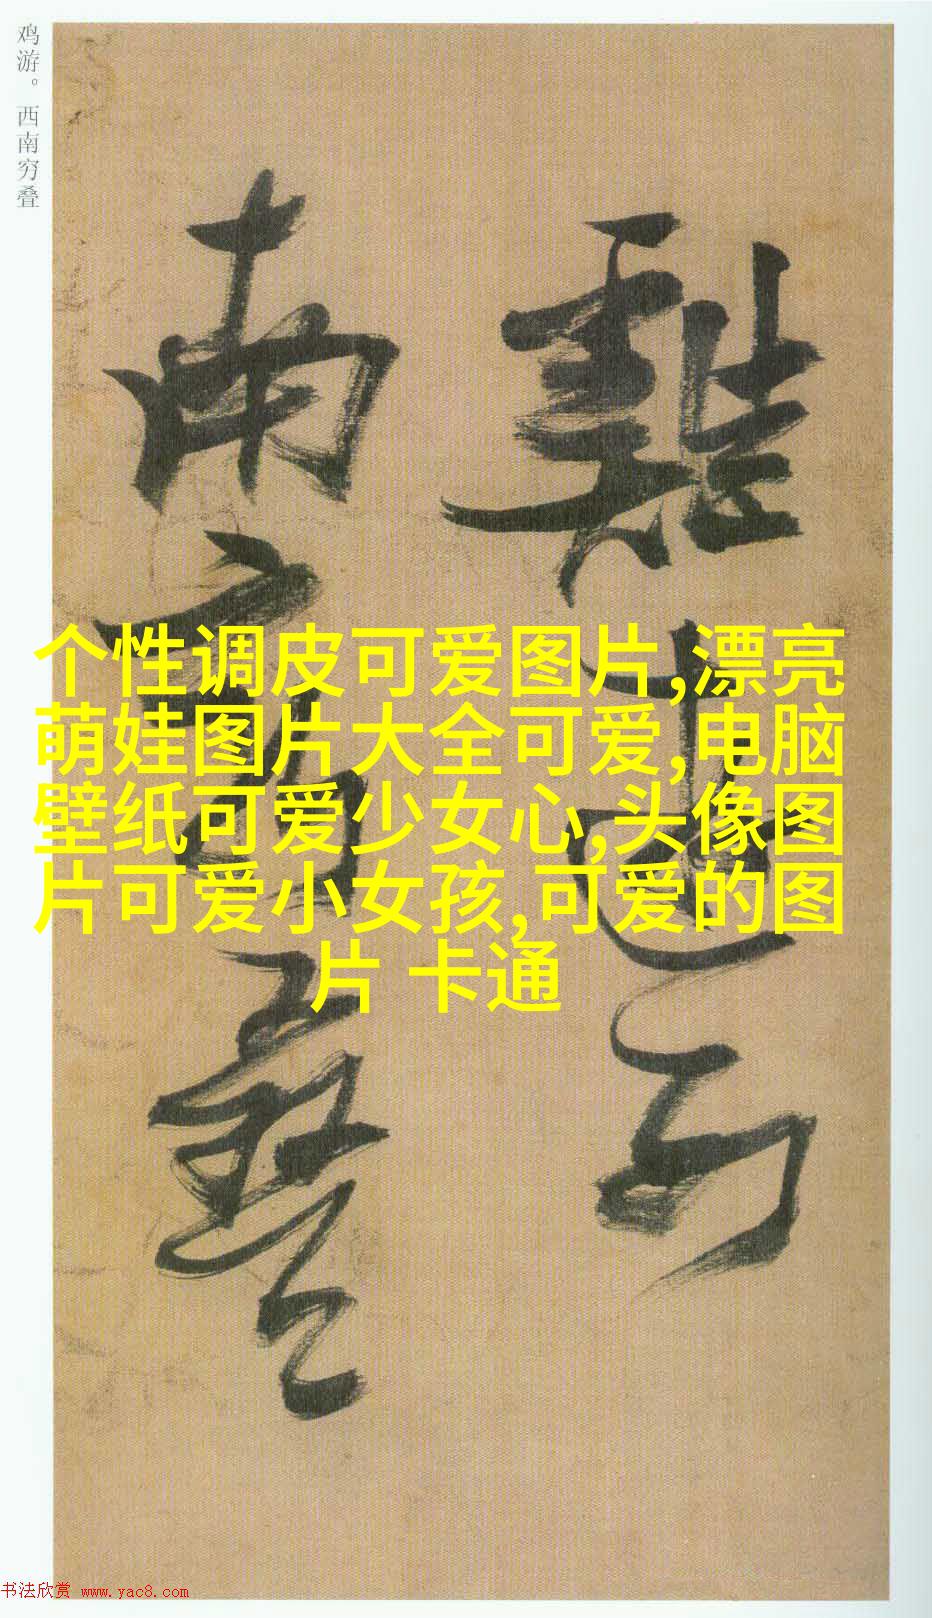 鸡游。西南穷叠
雞遊
西
南窮疊
个性调皮可爱图片,漂亮
萌娃图片大全可爱,电脑
壁纸可爱少女心,头像图
片可爱小女孩,可爱的图
片 卡通
书法欣赏 www.yac8.com